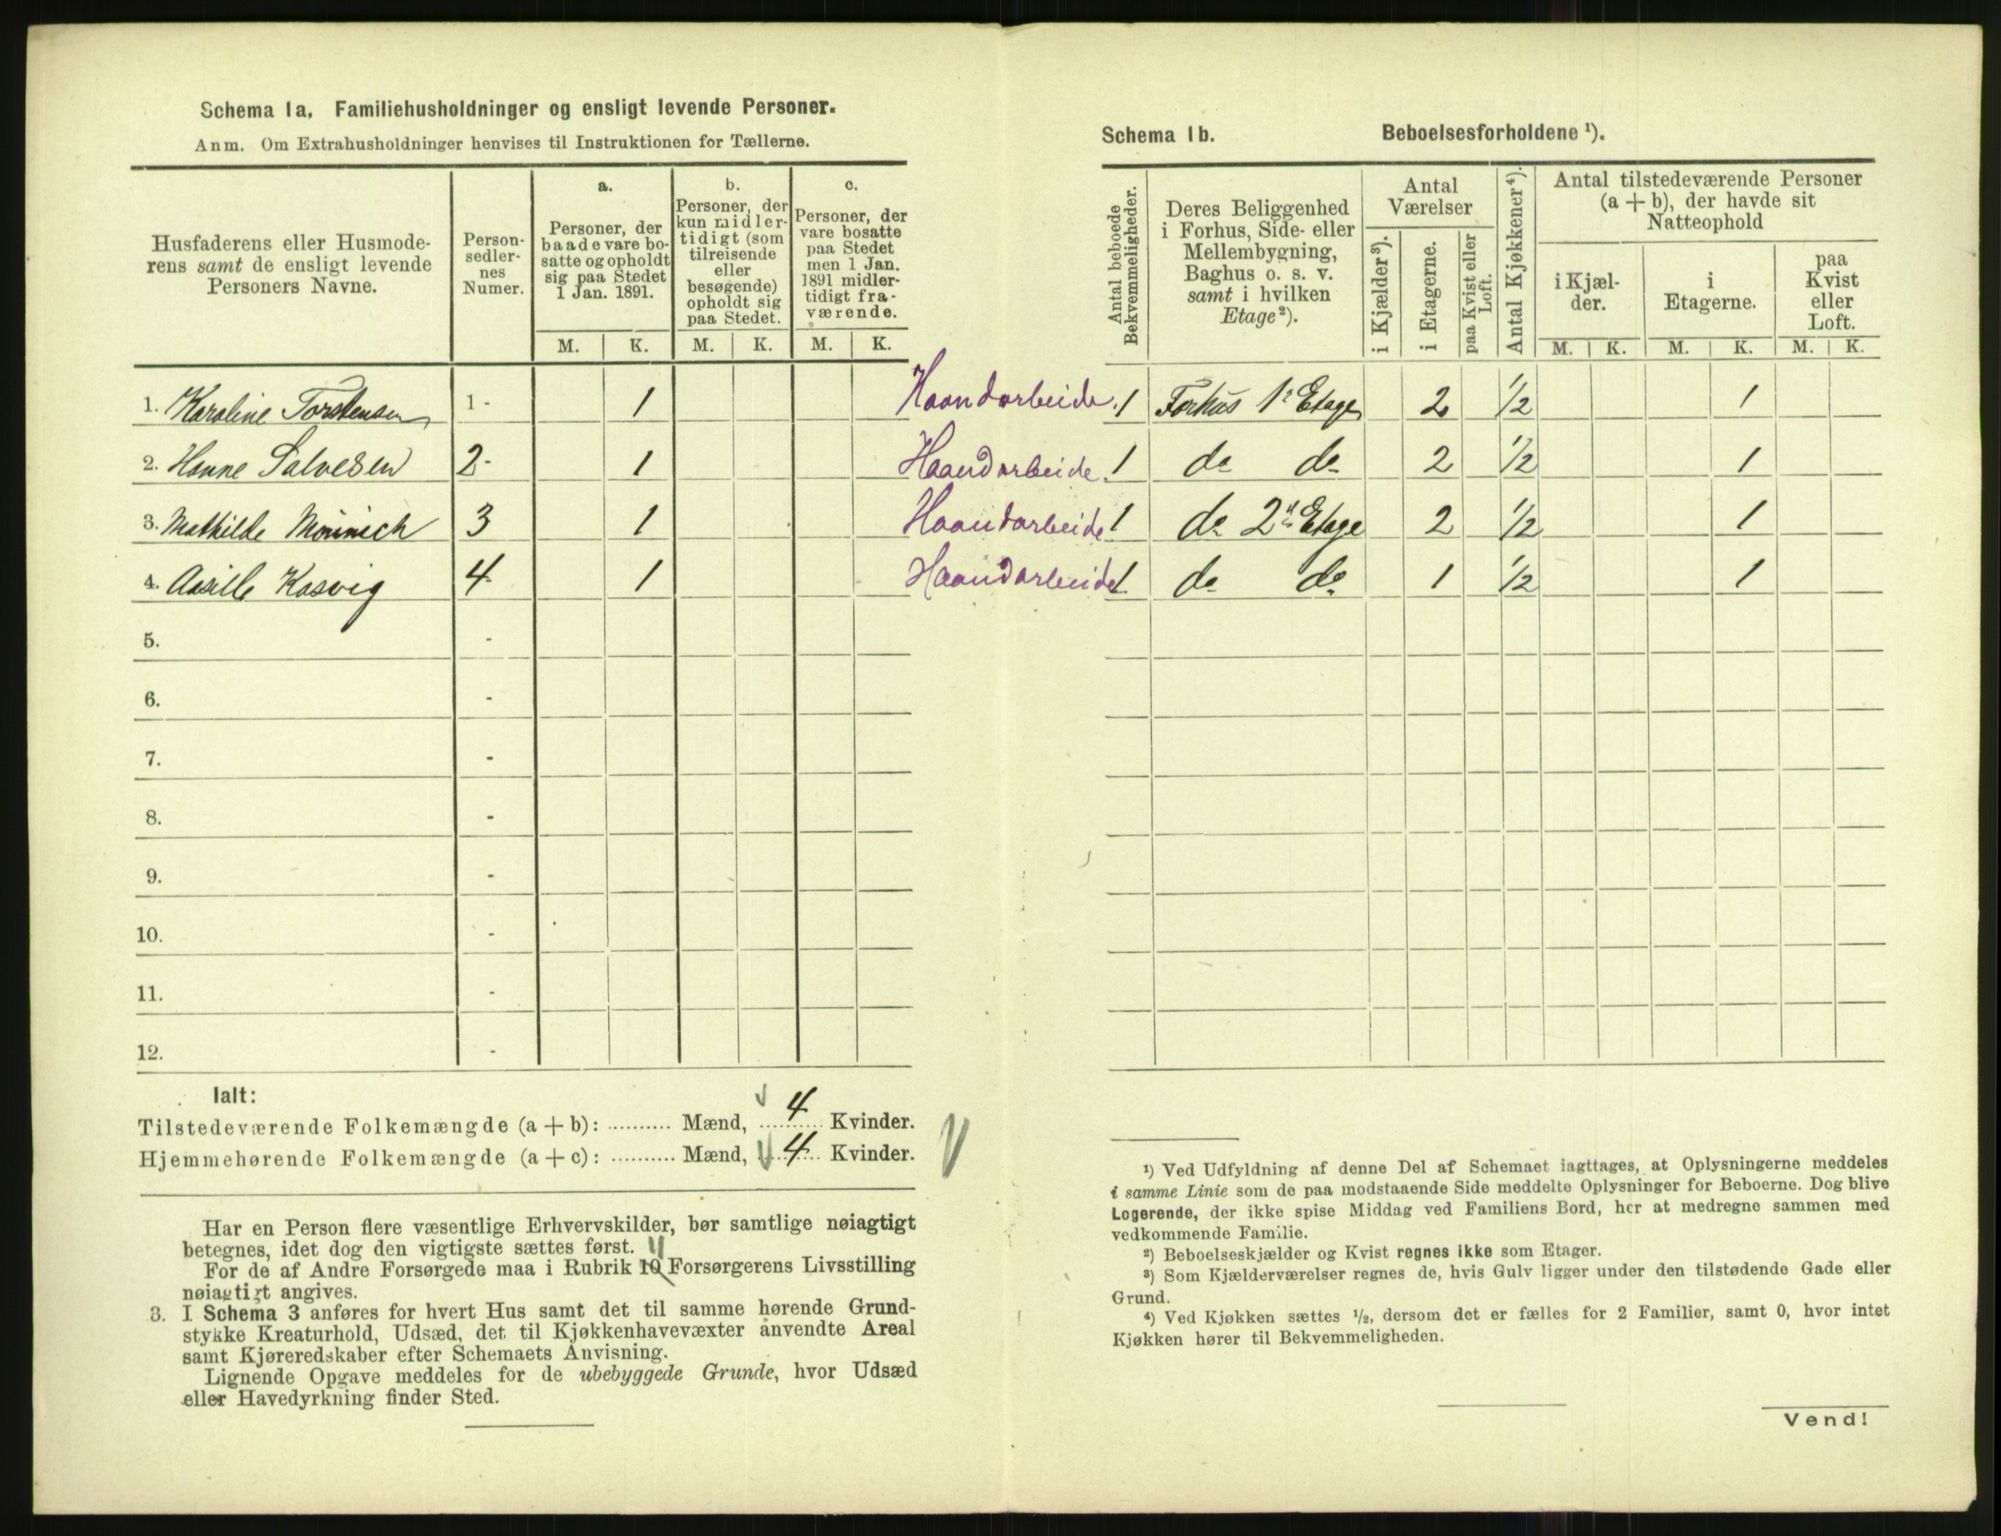 Schema 1a. Familiehusholdninger og ensligt levende Personer.
Anm. Om Extrahusholdninger henvises til Instruktionen for Tællerne.
Husfaderens eller Husmode-
rens samt de ensligt levende
Personers Navne.
Person-
sedler-
nes
Numer.
a.
Personer, der
baade vare bo-
satte og opholdt
sig paa Stedet
1 Jan. 1891.
b.
Personer, der
kun midler-
tidigt (som
tilreisende
eller
besøgende)
opholdt sig
paa Stedet.
c.
Personer, der
vare bosatte
paa Stedet
men 1 Jan.
1891 midler-
tidigt fra-
værende.
M. K. M. K. M. K.
1. Karoline Torstensen 1 - 1
2. Hanne Salvesen 2 - 1
3. Mathilde 3 1
4. Kosvig 4 - 1
5. -
6. -
7. -
8. -
9. -
10. -
11. -
12. -
Ialt:
Tilstedeværende Folkemængde (a + b): .......... Mænd, 4 Kvinder.
Hjemmehørende Folkemængde (a + c): .......... Mænd, 4 Kvinder.
Har en Person flere væsentlige Erhvervskilder, bør samtlige nøiagtigt
betegnes, idet dog den vigtigste sættes først.
11
For de af Andre Forsørgede maa i Rubrik 10 Forsørgerens Livsstilling
nøiagtigt angives.
3. I Schema 3 anføres for hvert Hus samt det til samme hørende Grund-
stykke Kreaturhold, Udsæd, det til Kjøkkenhavevæxter anvendte Areal
samt Kjøreredskaber efter Schemaets Anvisning.
Lignende Opgave meddeles for de ubebyggede Grunde, hvor Udsæd
eller Havedyrkning finder Sted.
Schema 1b. Beboelsesforholdene ¹).
Antal beboede
Bekvemmeligheder.
Deres Beliggenhed
i Forhus, Side- eller
Mellembygning,
Baghus o. s. v.
samt i hvilken
Etage²).
Antal
Værelser
i Kjælder³).
i Etagerne.
paa Kvist eller
Loft.
Antal Kjøkkener⁴).
Antal tilstedeværende Personer
(a + b), der havde sit
Natteophold
i Kjæl-
der.
i
Etagerne.
paa
Kvist
eller
Loft.
M. K. M. K. M. K.
Haandarbeide. 1 Forhus 1ᵉ Etage 2 ½ 1
Haandarbeide. 1 do do 2 ½ 1
Haandarbeide 1 do 2den Etage 2 ½ 1
Haandarbeide 1 do do 1 ½ 1
¹) Ved Udfyldning af denne Del af Schemaet iagttages, at Oplysningerne meddeles
i samme Linie som de paa modstaaende Side meddelte Oplysninger for Beboerne. Dog blive
Logerende, der ikke spise Middag ved Familiens Bord, her at medregne sammen med
vedkommende Familie.
²) Beboelseskjælder og Kvist regnes ikke som Etager.
³) Som Kjælderværelser regnes de, hvis Gulv ligger under den tilstødende Gade eller
Grund.
⁴) Ved Kjøkken sættes ½, dersom det er fælles for 2 Familier, samt 0, hvor intet
Kjøkken hører til Bekvemmeligheden.
Vend!